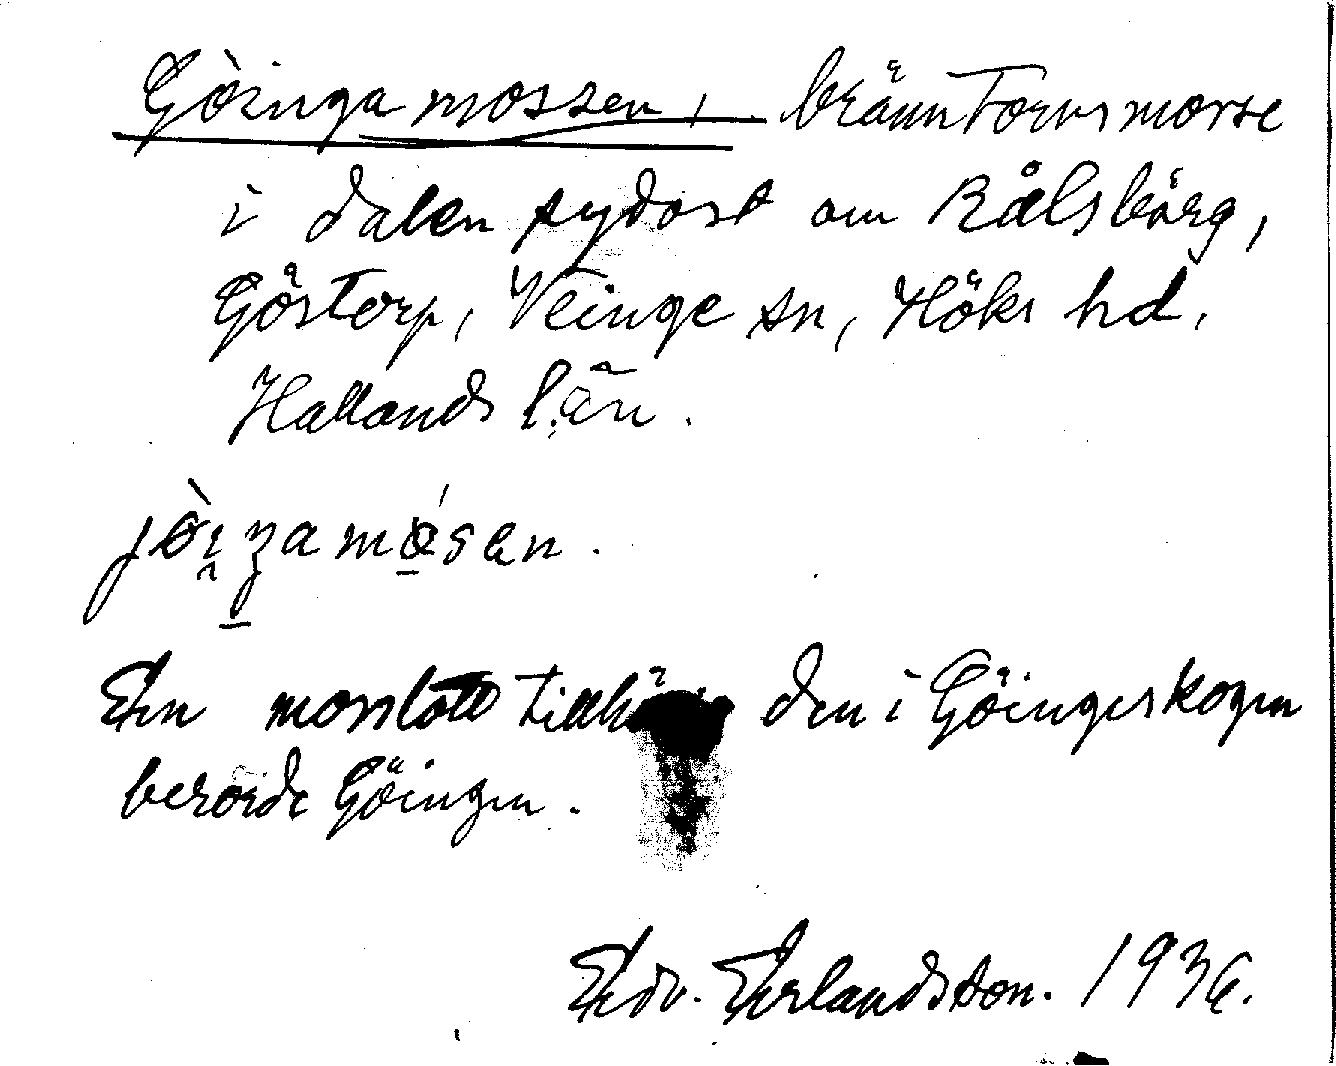 Göingamossen, bränntorvsmosse
i dalen sydost om Bålsbärg,
Göstorp, Veinge sn, Höks hd,
Hallands län.
En mosslott tillhörig den i Göingeskogen
berörde Göingen.
Edv. Erlandsson. 1936.